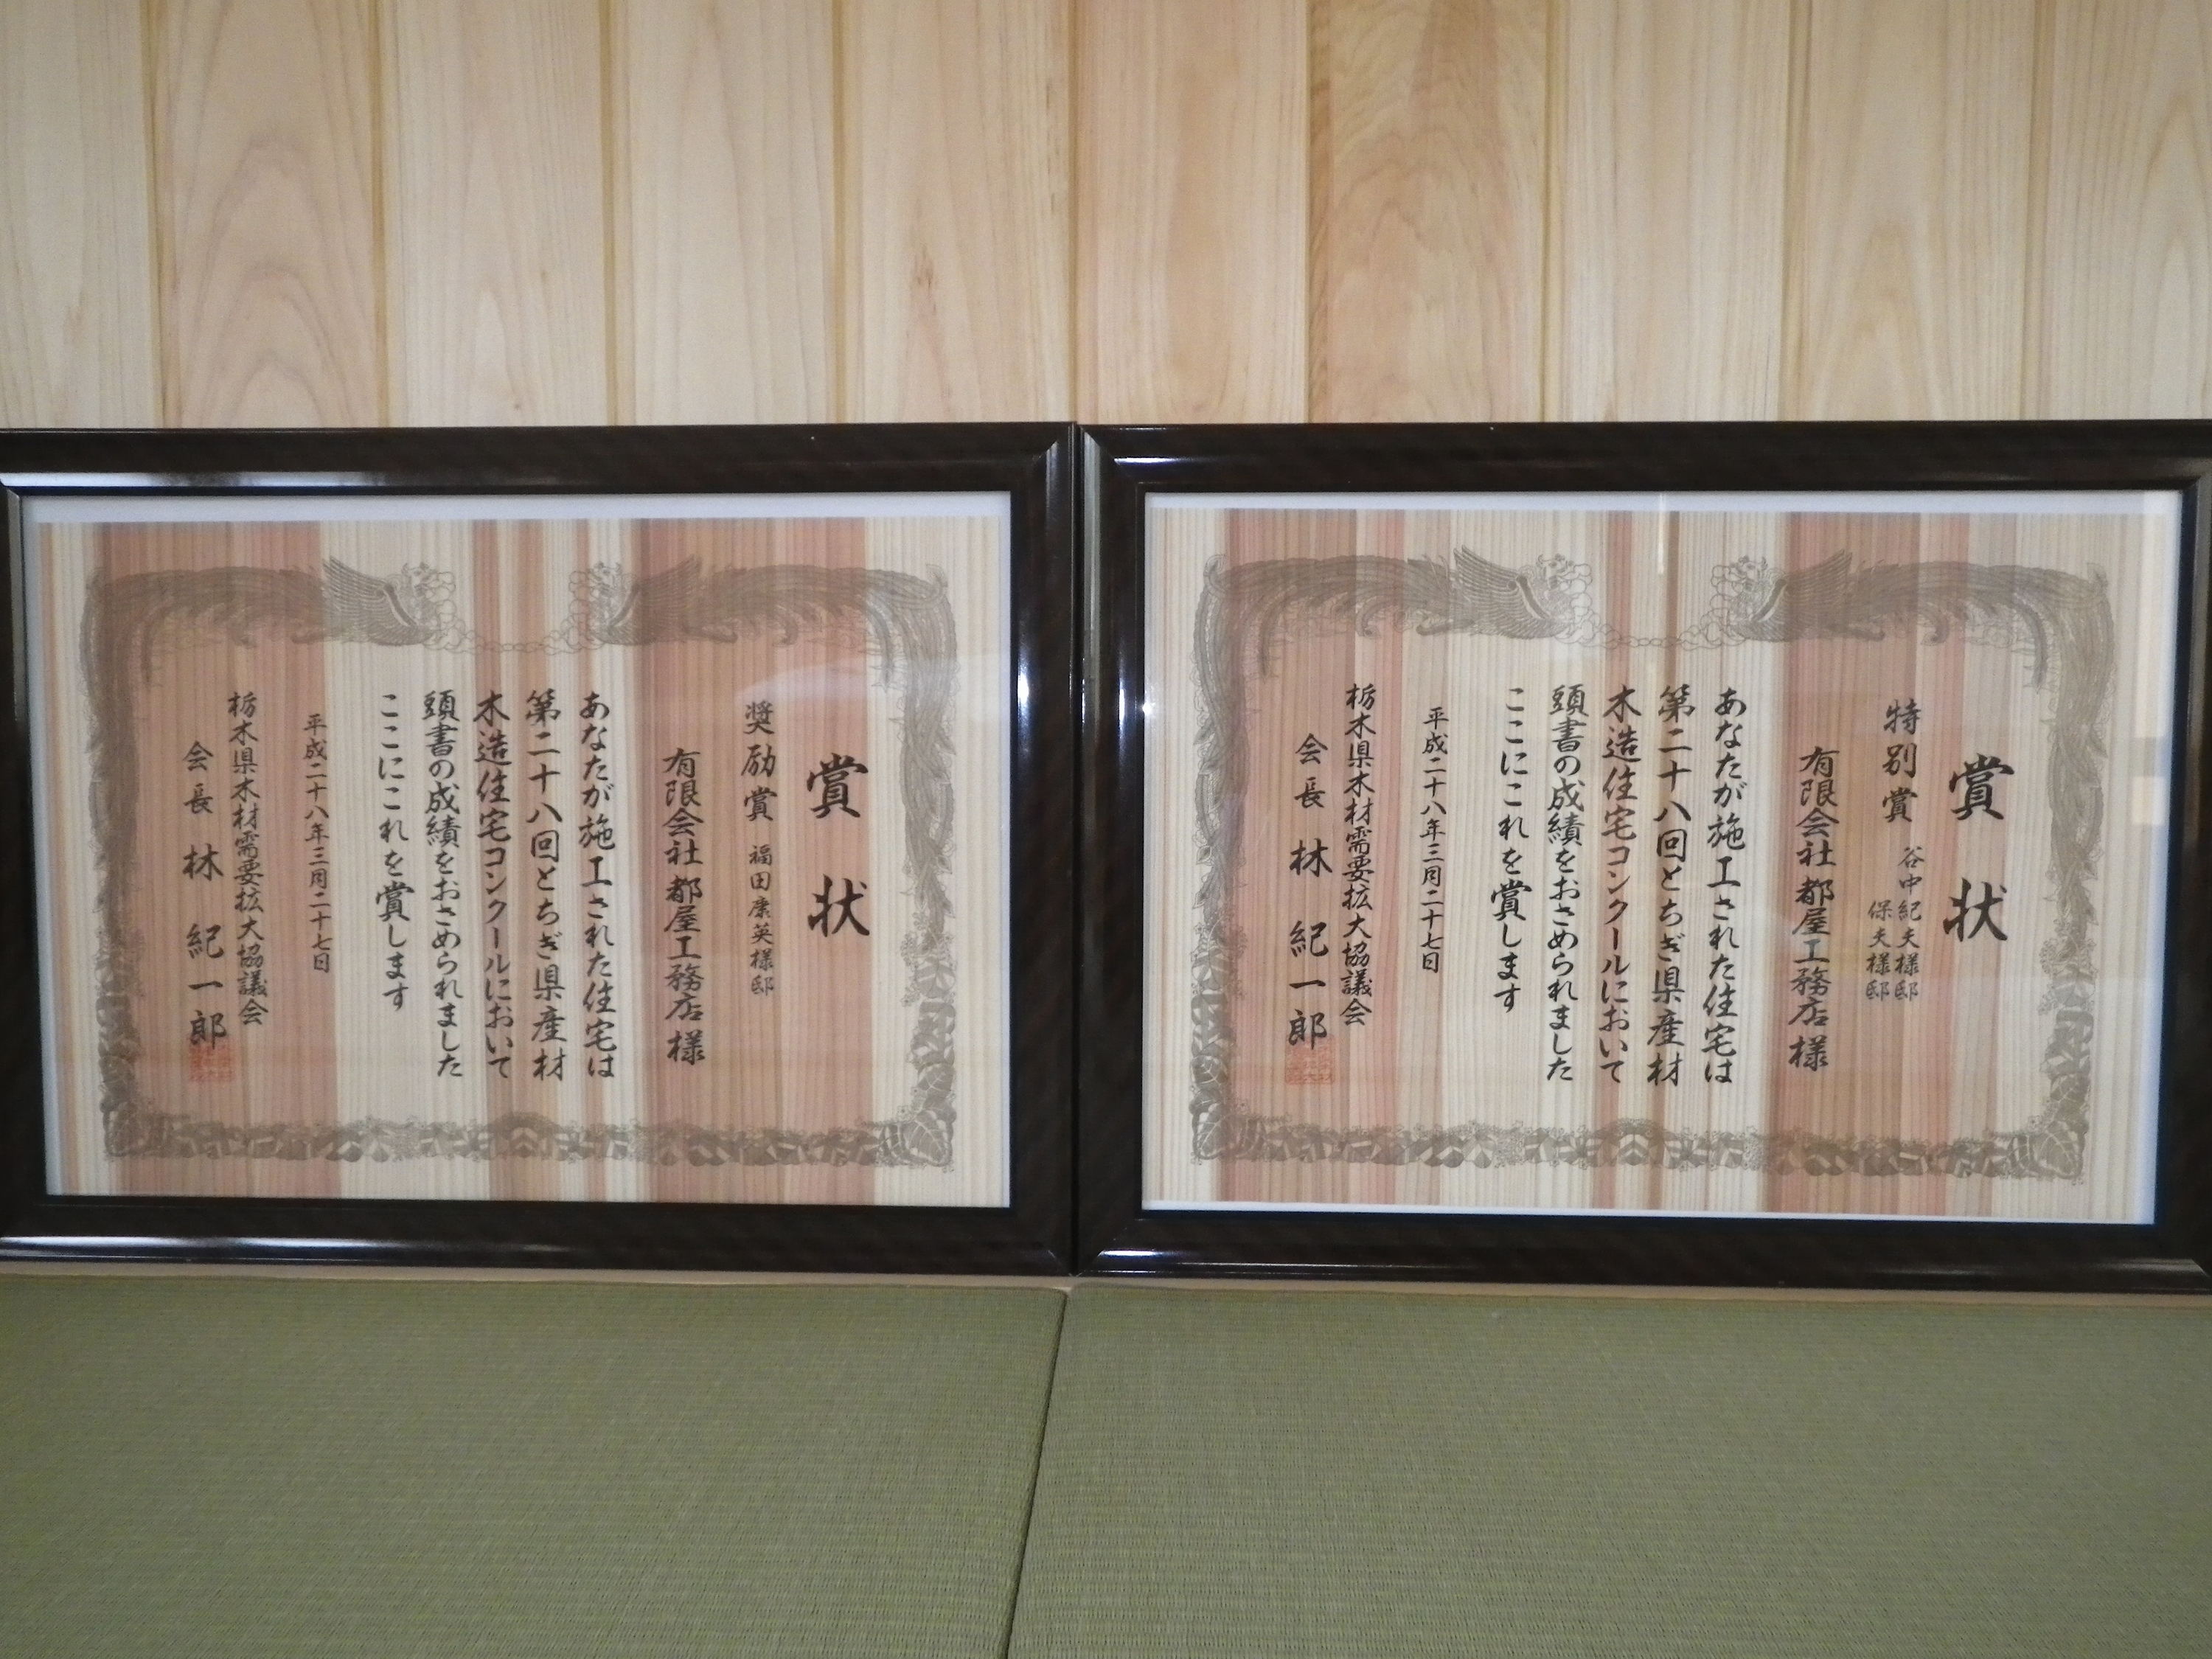 賞状
特別賞 谷中紀夫様邸
保夫様邸
有限会社都屋工務店様
あなたが施工された住宅は
第二十八回とちぎ県産材
木造住宅コンクールにおいて
頭書の成績をおさめられました
ここにこれを賞します
平成二十八年三月二十七日
栃木県木材需要拡大協議会
会長 林 紀一郎
賞状
奨励賞 福田康英様邸
有限会社都屋工務店様
あなたが施工された住宅は
第二十八回とちぎ県産材
木造住宅コンクールにおいて
頭書の成績をおさめられました
ここにこれを賞します
平成二十八年三月二十七日
栃木県木材需要拡大協議会
会長 林 紀一郎